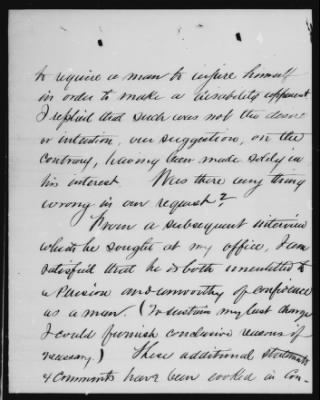 to require a man to injure himself
in order to make a disability apparent
I replied that such was not the desire
or intention, our suggestion, on the
contrary, having been made solely in
his interest. Was there any thing
wrong in our request?
From a subsequent interview
which he sought at my office, I am
satisfied that he is both unentitled to
a Pension and unworthy of confidence
as a man. (To sustain my last charge
I could furnish conclusive reasons if
necessary.) These additional statements
& comments have been evoked in con-